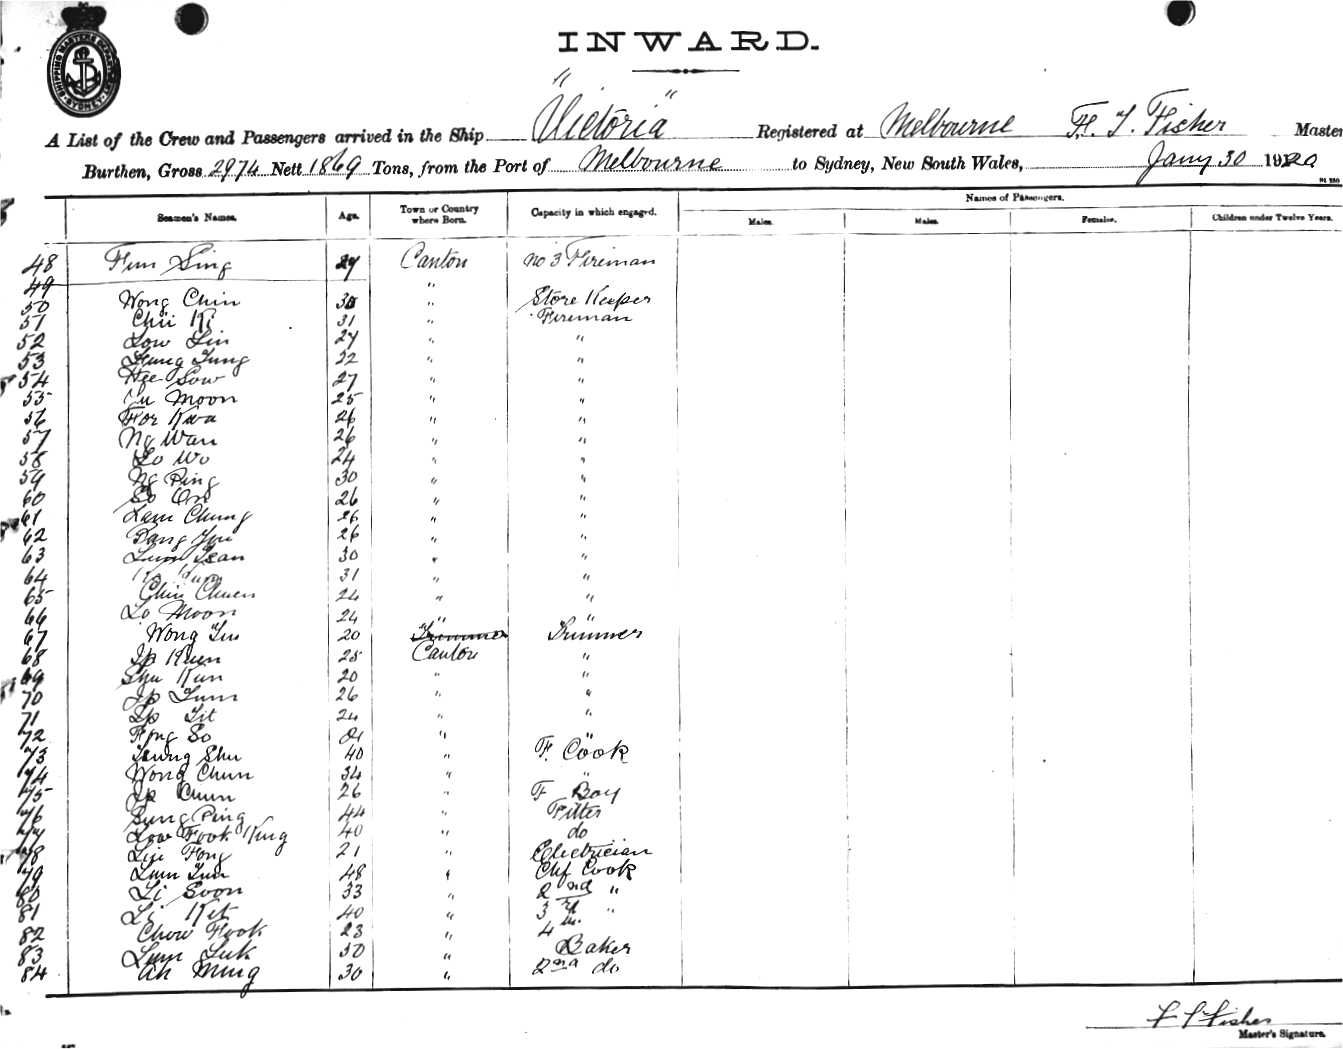 SHIPPING MASTER'S DEPARTMENT SYDNEY
INWARD.
A List of the Crew and Passengers arrived in the Ship "Victoria" Registered at Melbourne F. J. Fisher Master
Burthen, Gross 2974 Nett 1869 Tons, from the Port of Melbourne to Sydney, New South Wales, Jany 30 1920
Seamen's Names. Age. Town or Country where Born. Capacity in which engaged. Names of Passengers.
Males. Males. Females. Children under Twelve Years.
48 Fun Sing Canton no 3 Fireman
49 "
50 Wong Chin " Store Keeper
51 Chii Ki 31 " Fireman
52 Low Lin 24 " "
53 Leung Tung 22 " "
54 Hee Sow 27 " "
55 Moon 25 " "
56 For Kwa 26 " "
57 Ng Wan 26 " "
58 Lo Wo 24 " "
59 Ng Ping 30 " "
60 So On 26 " "
61 Lam Chung 26 " "
62 26 " "
63 30 " "
64 31 " "
65 Chin Chuen 24 " "
66 Lo Moon 24 " "
67 Wong 20 Trimmer Trimmer
68 Ip Kuen 25 Canton "
69 Shu Kun 20 " "
70 Ip Lum 26 " "
71 Ip Tit 24 " "
72 So " "
73 Shu 40 " F. Cook
74 Wong Chun 34 " "
75 Ip Chun 26 " F Boy
76 Sung Ping 44 " Fitter
77 Low Fook King 40 " do
78 Fong 21 " Electrician
79 Lum 48 " Chf Cook
80 Li Soon 33 " 2nd "
81 Li Kit 40 " 3rd "
82 Chow Fook 23 " 4th
83 Lum Luk 30 " Baker
84 Ah Ming 30 " 2nd do
Master's Signature.